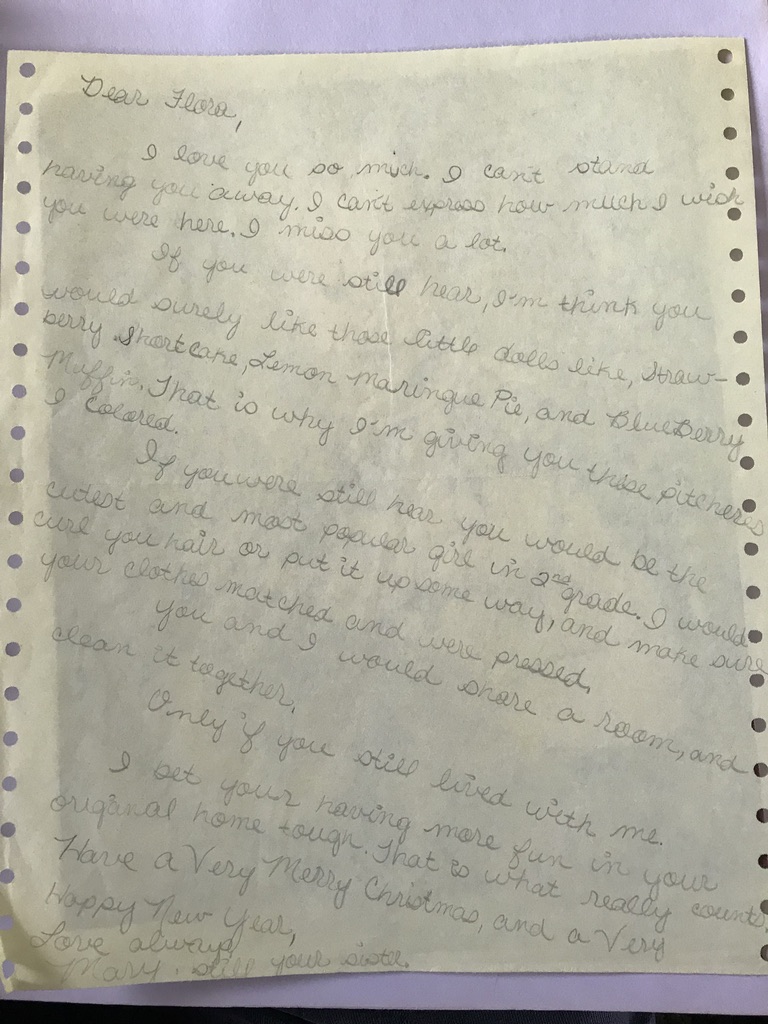 Dear Flora,
I love you so much. I can't stand
having you away. I can't express how much I wish
you were here. I miss you a lot.
If you were still hear, I'm think you
would surely like those little dolls like, Straw-
berry Shortcake, Lemon Maringue Pie, and BlueBerry
Muffin. That is why I'm giving you these pitcheres
I colored.
If you were still hear you would be the
cutest and most popular girl in 2nd grade. I would
curl you hair or put it up some way, and make sure
your clothes matched and were pressed.
you and I would share a room, and
clean it together.
Only if you still lived with me.
I bet your having more fun in your
original home tough. That is what really counts.
Have a Very Merry Christmas, and a Very
Happy New Year,
Love always
Mary. still your sister.